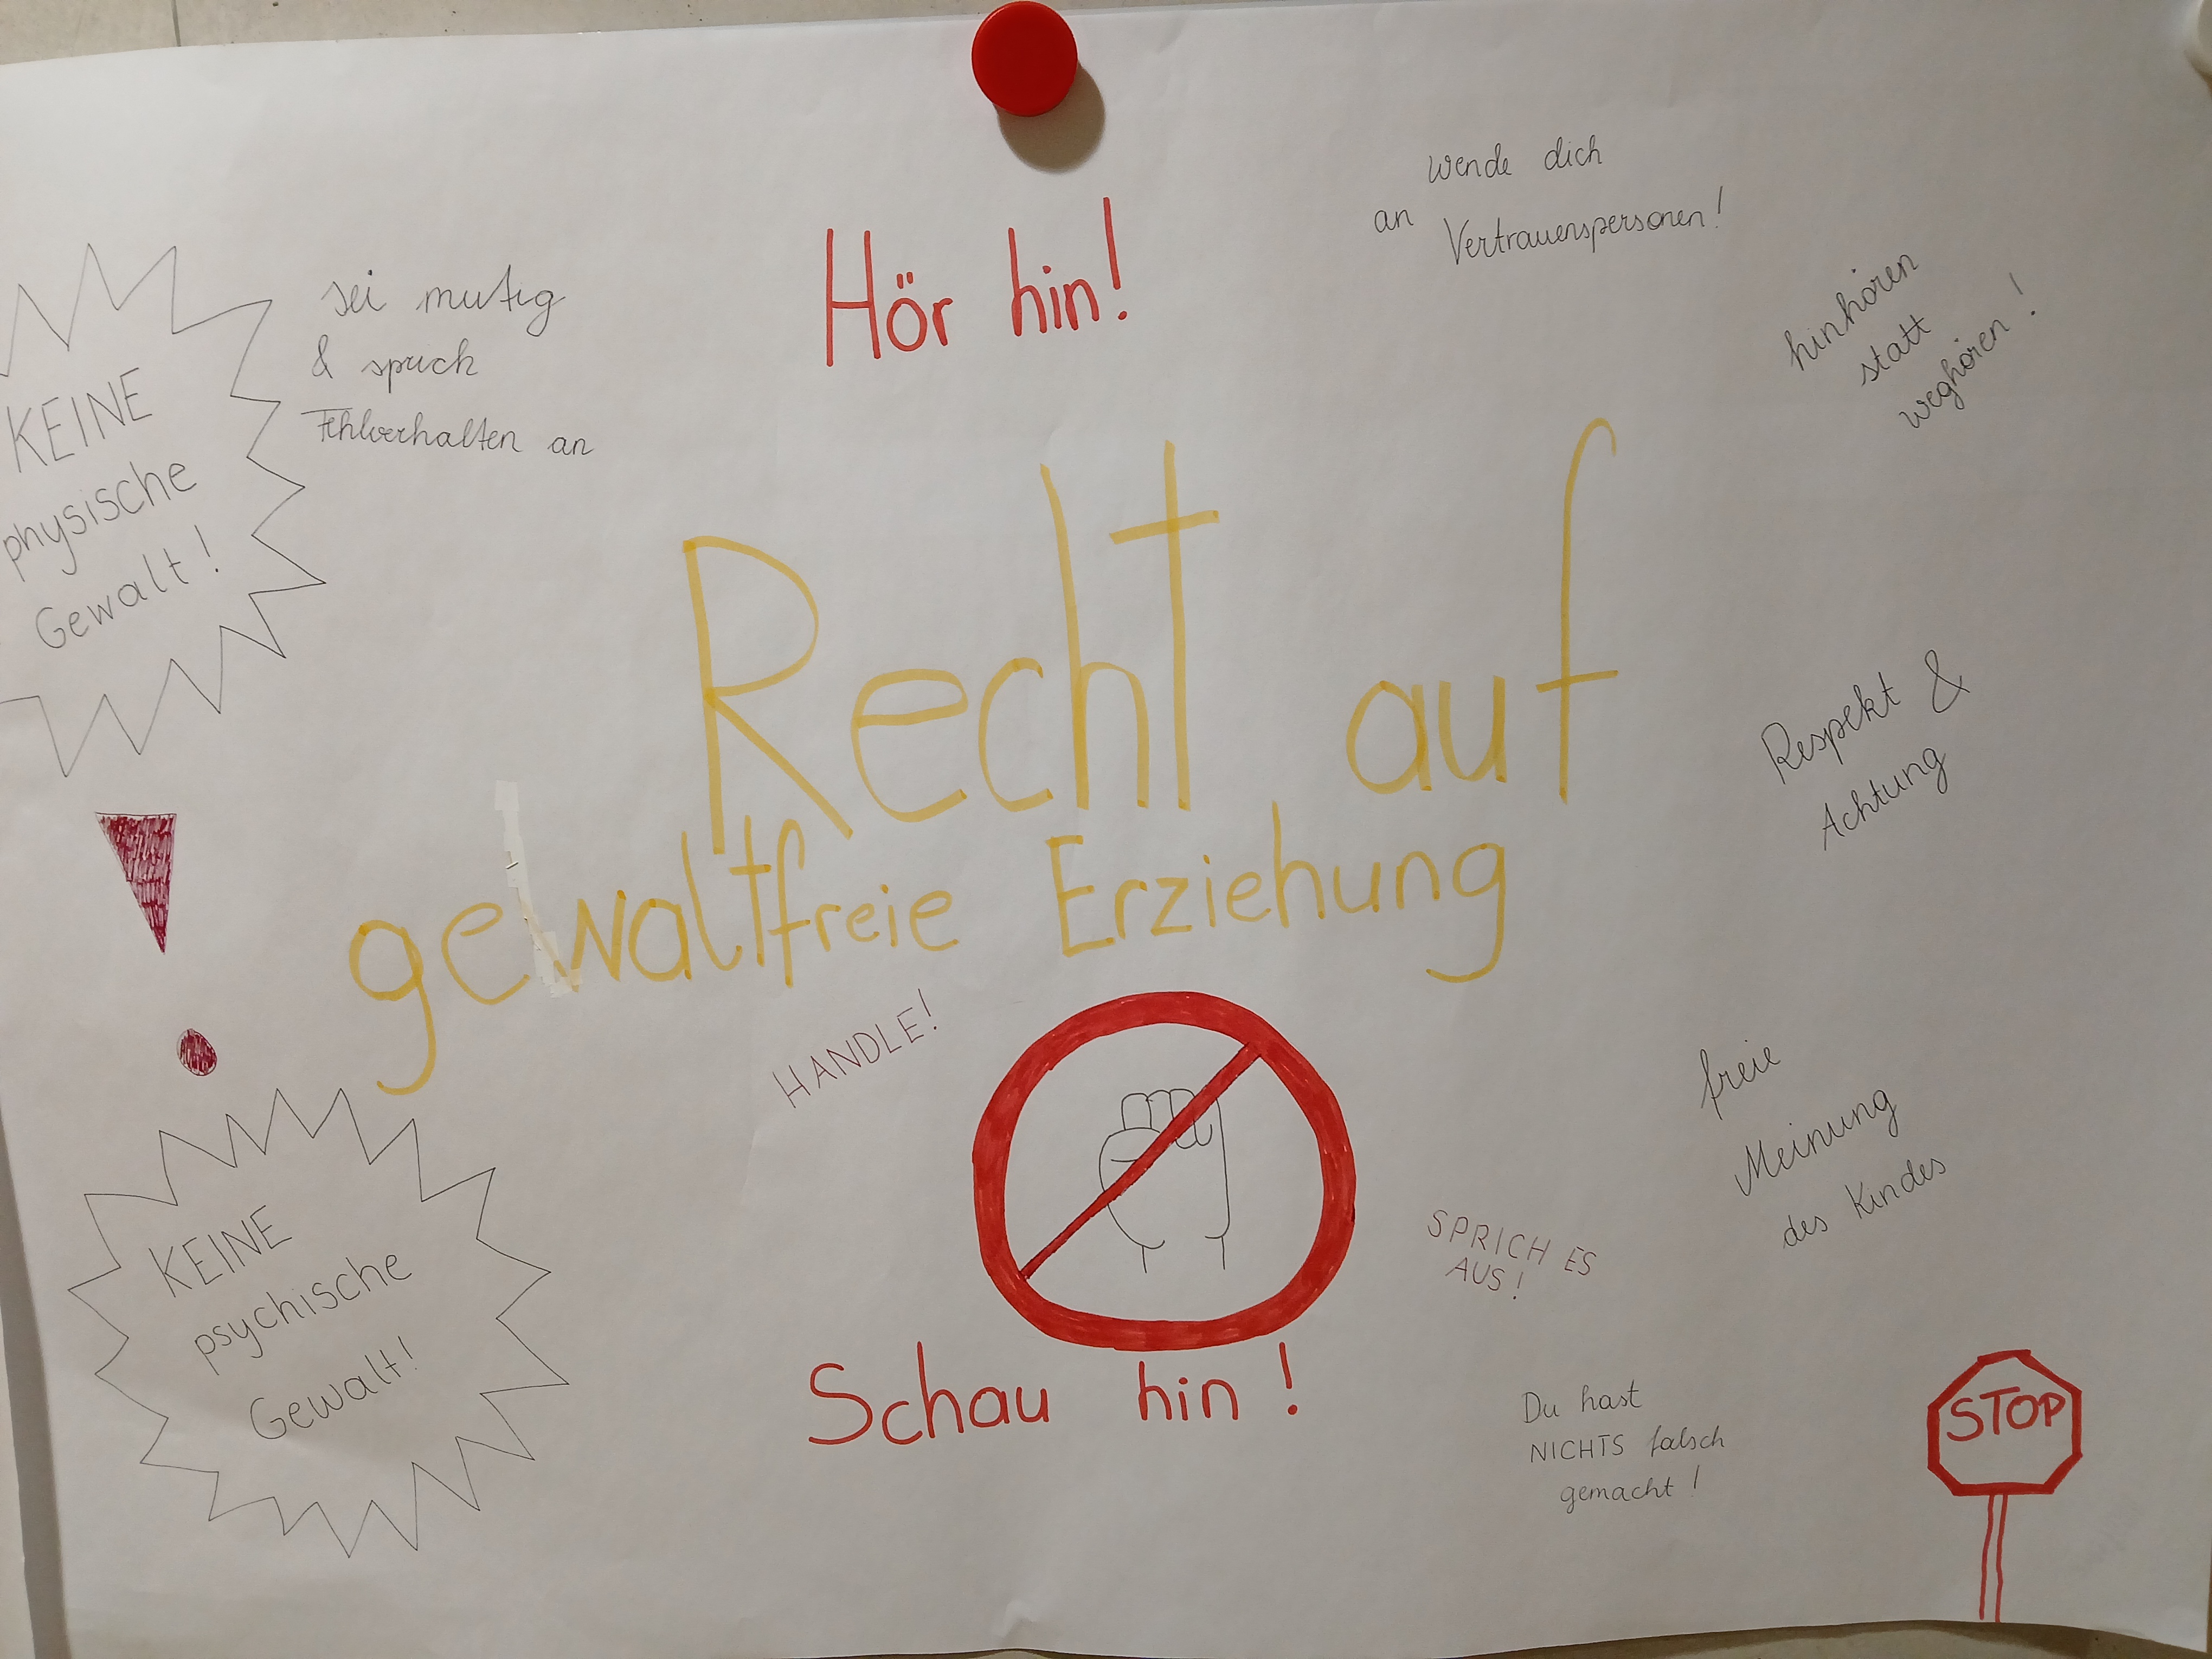 Hör hin!
wende dich
an Vertrauenspersonen!
hinhören
statt
weghören!
sei mutig
& sprich
Fehlverhalten an
KEINE
physische
Gewalt!
Recht auf
gewaltfreie Erziehung
Respekt &
Achtung
HANDLE!
freie
Meinung
des Kindes
KEINE
psychische
Gewalt!
SPRICH ES
AUS!
Schau hin!
Du hast
NICHTS falsch
gemacht!
STOP